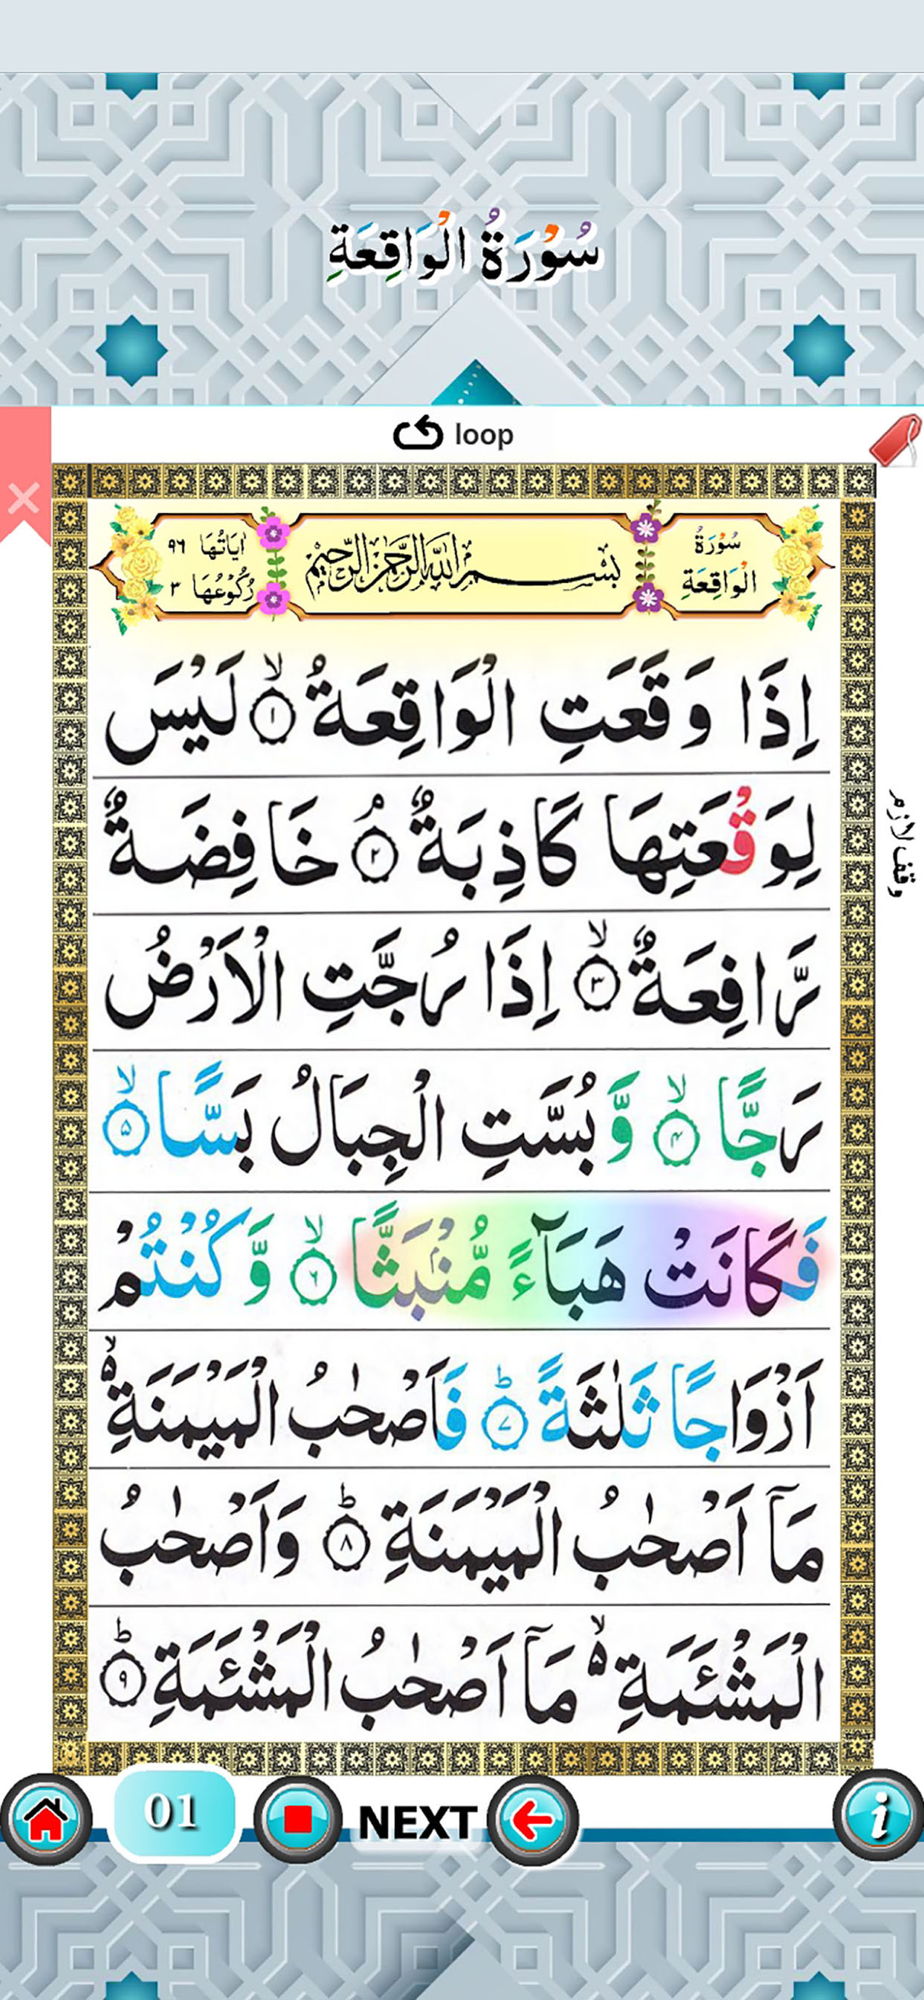 سُوْرَةُ الْوَاقِعَةِ
loop
سُوْرَةُ الْوَاقِعَةِ
بِسْمِ اللّٰهِ الرَّحْمٰنِ الرَّحِيْمِ
اٰيَاتُهَا ٩٦
رُكُوْعُهَا ٣
اِذَا وَقَعَتِ الْوَاقِعَةُ ۙ‏﴿١﴾ لَيْسَ
لِوَقْعَتِهَا كَاذِبَةٌ ۘ‏﴿٢﴾ خَافِضَةٌ
وقف لازم
رَّافِعَةٌ ۙ‏﴿٣﴾ اِذَا رُجَّتِ الْاَرْضُ
رَجًّا ۙ‏﴿٤﴾ وَّ بُسَّتِ الْجِبَالُ بَسًّا ۙ‏﴿٥﴾
فَكَانَتْ هَبَآءً مُّنْۢبَثًّا ۙ‏﴿٦﴾ وَّ كُنْتُمْ
اَزْوَاجًا ثَلٰثَةً ؕ‏﴿٧﴾ فَاَصْحٰبُ الْمَيْمَنَةِ ۙ۬
مَاۤ اَصْحٰبُ الْمَيْمَنَةِ ؕ‏﴿٨﴾ وَاَصْحٰبُ
الْمَشْئَمَةِ ۙ۬ مَاۤ اَصْحٰبُ الْمَشْئَمَةِ ؕ‏﴿٩﴾
01
NEXT
i